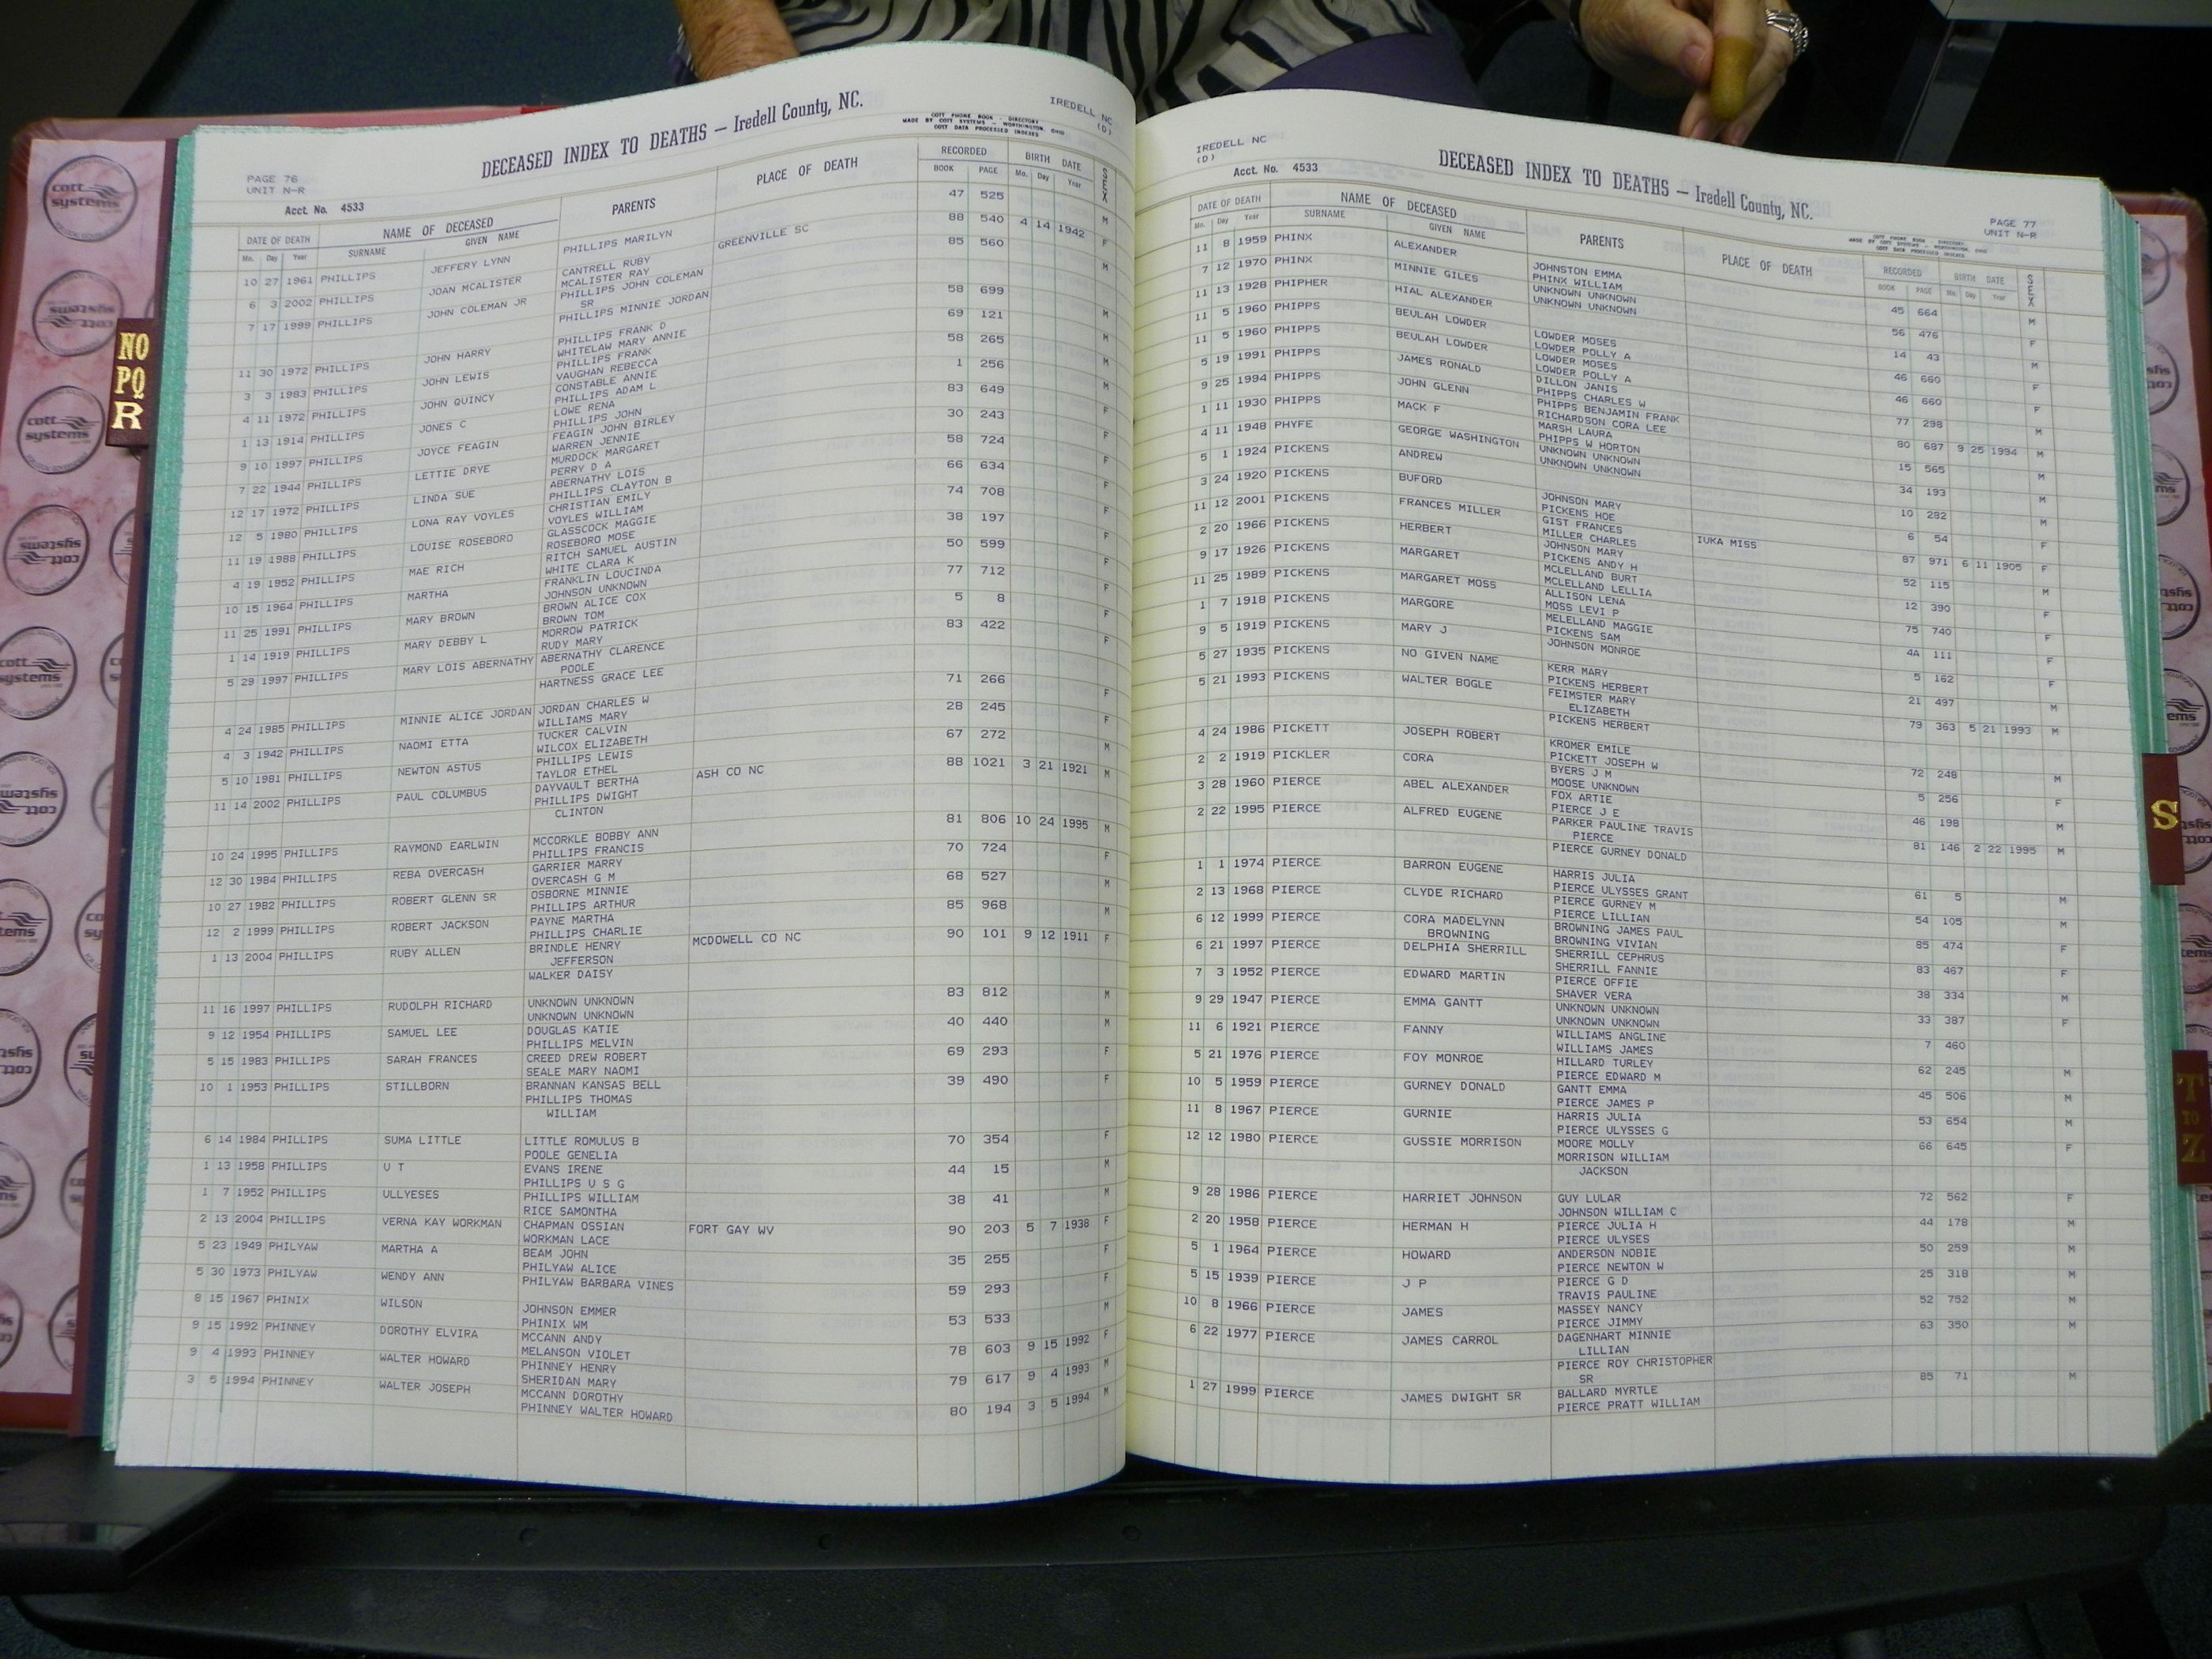 PAGE 76
UNIT N-R
DECEASED INDEX TO DEATHS — Iredell County, NC.
COTT PHONE BOOK - DIRECTORY
MADE BY COTT SYSTEMS - WORTHINGTON, OHIO
COTT DATA PROCESSED INDEXES
IREDELL NC
(D)
Acct. No. 4533
DATE OF DEATH NAME OF DECEASED PARENTS PLACE OF DEATH RECORDED BIRTH DATE SEX
Mo. Day Year SURNAME GIVEN NAME BOOK PAGE Mo. Day Year
10 27 1961 PHILLIPS JEFFERY LYNN PHILLIPS MARILYN 47 525 M
6 3 2002 PHILLIPS JOAN MCALISTER CANTRELL RUBY GREENVILLE SC 88 540 4 14 1942 F
MCALISTER RAY
7 17 1999 PHILLIPS JOHN COLEMAN JR PHILLIPS JOHN COLEMAN 85 560 M
SR
PHILLIPS MINNIE JORDAN
11 30 1972 PHILLIPS JOHN HARRY PHILLIPS FRANK D 58 699 M
WHITELAW MARY ANNIE
3 3 1983 PHILLIPS JOHN LEWIS PHILLIPS FRANK 69 121 M
VAUGHAN REBECCA
4 11 1972 PHILLIPS JOHN QUINCY CONSTABLE ANNIE 58 265 M
PHILLIPS ADAM L
1 13 1914 PHILLIPS JONES C LOWE RENA 1 256
PHILLIPS JOHN
9 10 1997 PHILLIPS JOYCE FEAGIN FEAGIN JOHN BIRLEY 83 649 F
WARREN JENNIE
7 22 1944 PHILLIPS LETTIE DRYE MURDOCK MARGARET 30 243 F
PERRY D A
12 17 1972 PHILLIPS LINDA SUE ABERNATHY LOIS 58 724 F
PHILLIPS CLAYTON B
12 5 1980 PHILLIPS LONA RAY VOYLES CHRISTIAN EMILY 66 634 F
VOYLES WILLIAM
11 19 1988 PHILLIPS LOUISE ROSEBORO GLASSCOCK MAGGIE 74 708 F
ROSEBORO MOSE
4 19 1952 PHILLIPS MAE RICH RITCH SAMUEL AUSTIN 38 197 F
WHITE CLARA K
10 15 1964 PHILLIPS MARTHA FRANKLIN LOUCINDA 50 599 F
JOHNSON UNKNOWN
11 25 1991 PHILLIPS MARY BROWN BROWN ALICE COX 77 712 F
BROWN TOM
1 14 1919 PHILLIPS MARY DEBBY L MORROW PATRICK 5 8 F
RUDY MARY
5 29 1997 PHILLIPS MARY LOIS ABERNATHY ABERNATHY CLARENCE 83 422 F
POOLE
HARTNESS GRACE LEE
4 24 1985 PHILLIPS MINNIE ALICE JORDAN JORDAN CHARLES W 71 266 F
WILLIAMS MARY
4 3 1942 PHILLIPS NAOMI ETTA TUCKER CALVIN 28 245 F
WILCOX ELIZABETH
5 10 1981 PHILLIPS NEWTON ASTUS PHILLIPS LEWIS 67 272 M
TAYLOR ETHEL
11 14 2002 PHILLIPS PAUL COLUMBUS DAYVAULT BERTHA ASH CO NC 88 1021 3 21 1921 M
PHILLIPS DWIGHT
CLINTON
10 24 1995 PHILLIPS RAYMOND EARLWIN MCCORKLE BOBBY ANN 81 806 10 24 1995 M
PHILLIPS FRANCIS
12 30 1984 PHILLIPS REBA OVERCASH GARRIER MARRY 70 724 F
OVERCASH G M
10 27 1982 PHILLIPS ROBERT GLENN SR OSBORNE MINNIE 68 527 M
PHILLIPS ARTHUR
12 2 1999 PHILLIPS ROBERT JACKSON PAYNE MARTHA 85 968 M
PHILLIPS CHARLIE
1 13 2004 PHILLIPS RUBY ALLEN BRINDLE HENRY MCDOWELL CO NC 90 101 9 12 1911 F
JEFFERSON
WALKER DAISY
11 16 1997 PHILLIPS RUDOLPH RICHARD UNKNOWN UNKNOWN 83 812 M
UNKNOWN UNKNOWN
9 12 1954 PHILLIPS SAMUEL LEE DOUGLAS KATIE 40 440 M
PHILLIPS MELVIN
5 15 1983 PHILLIPS SARAH FRANCES CREED DREW ROBERT 69 293 F
SEALE MARY NAOMI
10 1 1953 PHILLIPS STILLBORN BRANNAN KANSAS BELL 39 490 F
PHILLIPS THOMAS
WILLIAM
6 14 1984 PHILLIPS SUMA LITTLE LITTLE ROMULUS B 70 354 F
POOLE GENELIA
1 13 1958 PHILLIPS U T EVANS IRENE 44 15 M
PHILLIPS U S G
1 7 1952 PHILLIPS ULLYESES PHILLIPS WILLIAM 38 41 M
RICE SAMONTHA
2 13 2004 PHILLIPS VERNA KAY WORKMAN CHAPMAN OSSIAN FORT GAY WV 90 203 5 7 1938 F
WORKMAN LACE
5 23 1949 PHILYAW MARTHA A BEAM JOHN 35 255 F
PHILYAW ALICE
5 30 1973 PHILYAW WENDY ANN PHILYAW BARBARA VINES 59 293 F
8 15 1967 PHINIX WILSON JOHNSON EMMER 53 533 M
PHINIX WM
9 15 1992 PHINNEY DOROTHY ELVIRA MCCANN ANDY 78 603 9 15 1992 F
MELANSON VIOLET
9 4 1993 PHINNEY WALTER HOWARD PHINNEY HENRY 79 617 9 4 1993 M
SHERIDAN MARY
3 5 1994 PHINNEY WALTER JOSEPH MCCANN DOROTHY 80 194 3 5 1994 M
PHINNEY WALTER HOWARD
IREDELL NC
(D)
Acct. No. 4533
DECEASED INDEX TO DEATHS — Iredell County, NC.
PAGE 77
UNIT N-R
COTT PHONE BOOK - DIRECTORY
MADE BY COTT SYSTEMS - WORTHINGTON, OHIO
COTT DATA PROCESSED INDEXES
DATE OF DEATH NAME OF DECEASED PARENTS PLACE OF DEATH RECORDED BIRTH DATE SEX
Mo. Day Year SURNAME GIVEN NAME BOOK PAGE Mo. Day Year
11 8 1959 PHINX ALEXANDER JOHNSTON EMMA 45 664 M
PHINX WILLIAM
7 12 1970 PHINX MINNIE GILES UNKNOWN UNKNOWN 56 476 F
UNKNOWN UNKNOWN
11 13 1928 PHIPHER HIAL ALEXANDER 14 43 M
11 5 1960 PHIPPS BEULAH LOWDER LOWDER MOSES 46 660 F
LOWDER POLLY A
11 5 1960 PHIPPS BEULAH LOWDER LOWDER MOSES 46 660 F
LOWDER POLLY A
5 19 1991 PHIPPS JAMES RONALD DILLON JANIS 77 298 M
PHIPPS CHARLES W
9 25 1994 PHIPPS JOHN GLENN PHIPPS BENJAMIN FRANK 80 687 9 25 1994 M
RICHARDSON CORA LEE
1 11 1930 PHIPPS MACK F MARSH LAURA 15 565 M
PHIPPS W HORTON
4 11 1948 PHYFE GEORGE WASHINGTON UNKNOWN UNKNOWN 34 193 M
UNKNOWN UNKNOWN
5 1 1924 PICKENS ANDREW 10 282 M
3 24 1920 PICKENS BUFORD JOHNSON MARY 6 54 F
PICKENS HOE
11 12 2001 PICKENS FRANCES MILLER GIST FRANCES IUKA MISS 87 971 6 11 1905 F
MILLER CHARLES
2 20 1966 PICKENS HERBERT JOHNSON MARY 52 115 M
PICKENS ANDY H
9 17 1926 PICKENS MARGARET MCLELLAND BURT 12 390 F
MCLELLAND LELLIA
11 25 1989 PICKENS MARGARET MOSS ALLISON LENA 75 740 F
MOSS LEVI P
1 7 1918 PICKENS MARGORE MELELLAND MAGGIE 4A 111 F
PICKENS SAM
9 5 1919 PICKENS MARY J JOHNSON MONROE 5 162 F
5 27 1935 PICKENS NO GIVEN NAME KERR MARY 21 497 M
PICKENS HERBERT
5 21 1993 PICKENS WALTER BOGLE FEIMSTER MARY 79 363 5 21 1993 M
ELIZABETH
PICKENS HERBERT
4 24 1986 PICKETT JOSEPH ROBERT KROMER EMILE 72 248 M
PICKETT JOSEPH W
2 2 1919 PICKLER CORA BYERS J M 5 256 F
MOOSE UNKNOWN
3 28 1960 PIERCE ABEL ALEXANDER FOX ARTIE 46 198 M
PIERCE J E
2 22 1995 PIERCE ALFRED EUGENE PARKER PAULINE TRAVIS 81 146 2 22 1995 M
PIERCE
PIERCE GURNEY DONALD
1 1 1974 PIERCE BARRON EUGENE HARRIS JULIA 61 5 M
PIERCE ULYSSES GRANT
2 13 1968 PIERCE CLYDE RICHARD PIERCE GURNEY M 54 105 M
PIERCE LILLIAN
6 12 1999 PIERCE CORA MADELYNN BROWNING JAMES PAUL 85 474 F
BROWNING BROWNING VIVIAN
6 21 1997 PIERCE DELPHIA SHERRILL SHERRILL CEPHRUS 83 467 F
SHERRILL FANNIE
7 3 1952 PIERCE EDWARD MARTIN PIERCE OFFIE 38 334 M
SHAVER VERA
9 29 1947 PIERCE EMMA GANTT UNKNOWN UNKNOWN 33 387 F
UNKNOWN UNKNOWN
11 6 1921 PIERCE FANNY WILLIAMS ANGLINE 7 460
WILLIAMS JAMES
5 21 1976 PIERCE FOY MONROE HILLARD TURLEY 62 245 M
PIERCE EDWARD M
10 5 1959 PIERCE GURNEY DONALD GANTT EMMA 45 506 M
PIERCE JAMES P
11 8 1967 PIERCE GURNIE HARRIS JULIA 53 654 M
PIERCE ULYSSES G
12 12 1980 PIERCE GUSSIE MORRISON MOORE MOLLY 66 645 F
MORRISON WILLIAM
JACKSON
9 28 1986 PIERCE HARRIET JOHNSON GUY LULAR 72 562 F
JOHNSON WILLIAM C
2 20 1958 PIERCE HERMAN H PIERCE JULIA H 44 178 M
PIERCE ULYSES
5 1 1964 PIERCE HOWARD ANDERSON NOBIE 50 259 M
PIERCE NEWTON W
5 15 1939 PIERCE J P PIERCE G D 25 318 M
TRAVIS PAULINE
10 8 1966 PIERCE JAMES MASSEY NANCY 52 752 M
PIERCE JIMMY
6 22 1977 PIERCE JAMES CARROL DAGENHART MINNIE 63 350 M
LILLIAN
PIERCE ROY CHRISTOPHER
SR
1 27 1999 PIERCE JAMES DWIGHT SR BALLARD MYRTLE 85 71 M
PIERCE PRATT WILLIAM
NO
PQ
R
S
T
TO
Z
cott
systems